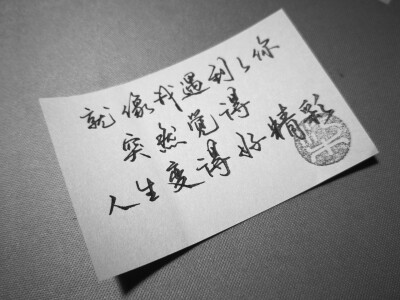 就像我遇到了你
突然觉得
人生变得好精彩